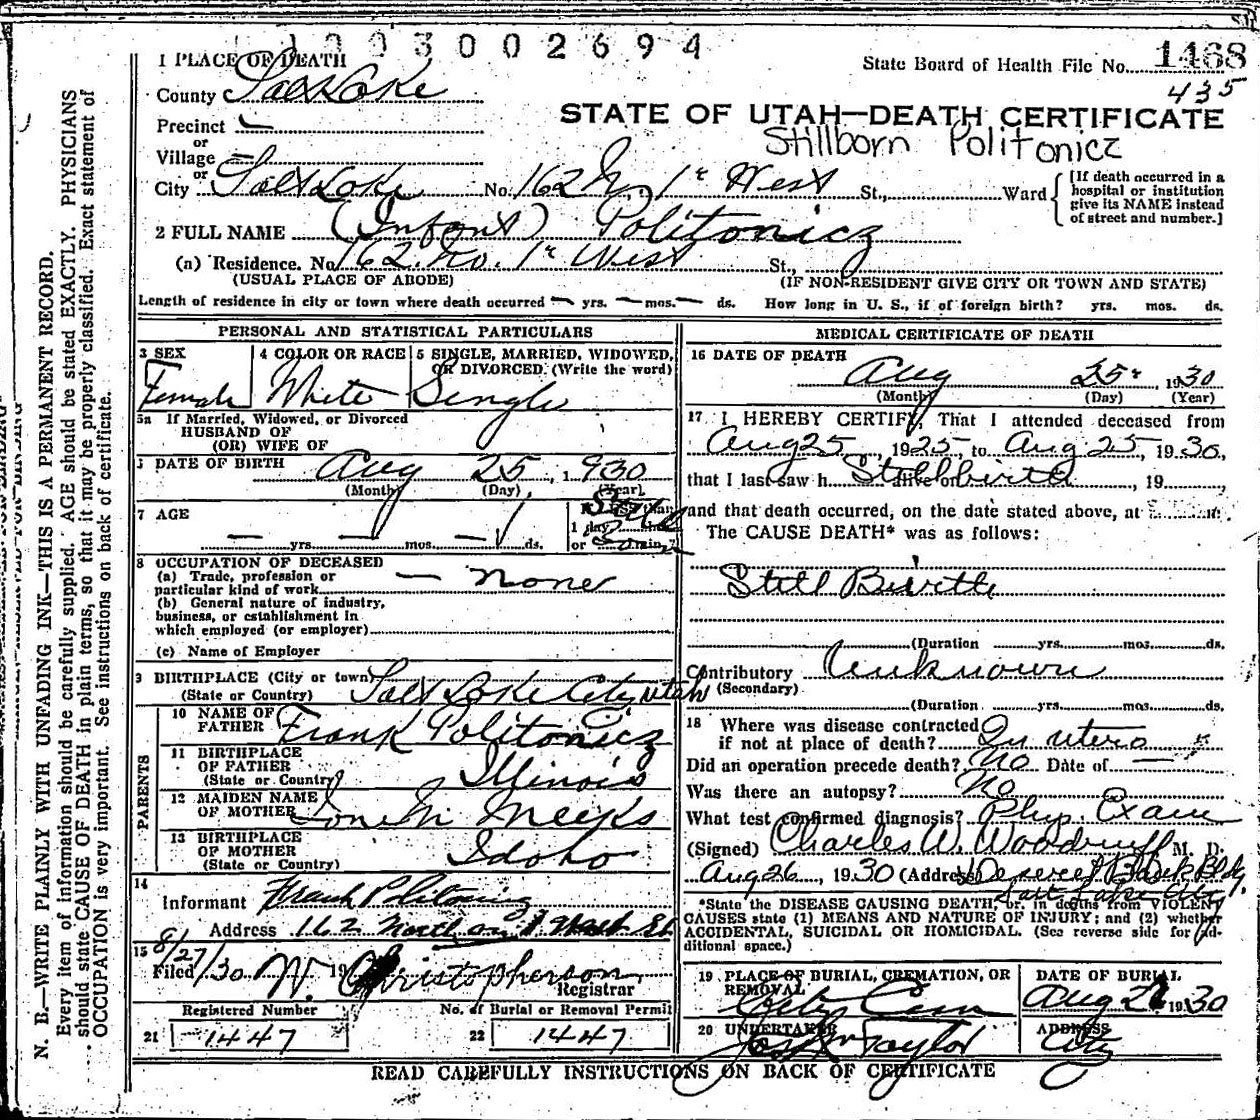 1003002694
1 PLACE OF DEATH
State Board of Health File No. 1468
435
County Salt Lake
STATE OF UTAH—DEATH CERTIFICATE
Precinct
Stillborn Politonicz
or
Village
or
City Salt Lake No. 162 No. 1st West St., Ward
[If death occurred in a hospital or institution give its NAME instead of street and number.]
2 FULL NAME (Infant) Politonicz
(a) Residence. No. 162 No. 1st West St.,
(USUAL PLACE OF ABODE) (IF NON-RESIDENT GIVE CITY OR TOWN AND STATE)
Length of residence in city or town where death occurred — yrs. — mos. — ds. How long in U. S., if of foreign birth? yrs. mos. ds.
PERSONAL AND STATISTICAL PARTICULARS
3 SEX
Female
4 COLOR OR RACE
White
5 SINGLE, MARRIED, WIDOWED, OR DIVORCED. (Write the word)
Single
5a If Married, Widowed, or Divorced
HUSBAND OF
(OR) WIFE OF
DATE OF BIRTH Aug 25, 1930
(Month) (Day) (Year)
7 AGE
— yrs — mos. — ds.
1 day
or min.?
8 OCCUPATION OF DECEASED
(a) Trade, profession or particular kind of work — none
(b) General nature of industry, business, or establishment in which employed (or employer)
(c) Name of Employer
9 BIRTHPLACE (City or town) Salt Lake City Utah
(State or Country)
PARENTS
10 NAME OF FATHER Frank Politonicz
11 BIRTHPLACE OF FATHER Illinois
(State or Country)
12 MAIDEN NAME OF MOTHER Meeks
13 BIRTHPLACE OF MOTHER Idaho
(State or Country)
14
Informant Frank
Address 162 North 1 West St
15
Filed 8/27/30 19 W. Christopherson
Registrar
Registered Number
21 1447
No. of Burial or Removal Permit
22 1447
MEDICAL CERTIFICATE OF DEATH
16 DATE OF DEATH
Aug 25, 1930
(Month) (Day) (Year)
17 I HEREBY CERTIFY, That I attended deceased from
Aug 25, 1925, to Aug 25, 1930,
that I last saw h alive on Stillbirth, 19
and that death occurred, on the date stated above, at m.
The CAUSE DEATH* was as follows:
Still Birth
(Duration yrs. mos. ds.
Contributory Unknown
(Secondary)
(Duration yrs. mos. ds.
18 Where was disease contracted
if not at place of death? In utero
Did an operation precede death? No Date of —
Was there an autopsy? No
What test confirmed diagnosis? Phys. Exam
(Signed) Charles W. Woodruff M. D.
Aug 26, 1930 (Address) Deseret Bank Bldg.
Salt Lake City
*State the DISEASE CAUSING DEATH, or, in deaths from VIOLENT
CAUSES state (1) MEANS AND NATURE OF INJURY; and (2) whether
ACCIDENTAL, SUICIDAL OR HOMICIDAL. (See reverse side for ad-
ditional space.)
19 PLACE OF BURIAL, CREMATION, OR REMOVAL
City Cem
DATE OF BURIAL
Aug 1930
20 UNDERTAKER
Taylor
ADDRESS
City
READ CAREFULLY INSTRUCTIONS ON BACK OF CERTIFICATE
N. B.—WRITE PLAINLY WITH UNFADING INK—THIS IS A PERMANENT RECORD.
Every item of information should be carefully supplied. AGE should be stated EXACTLY. PHYSICIANS
should state CAUSE OF DEATH in plain terms, so that it may be properly classified. Exact statement of
OCCUPATION is very important. See instructions on back of certificate.